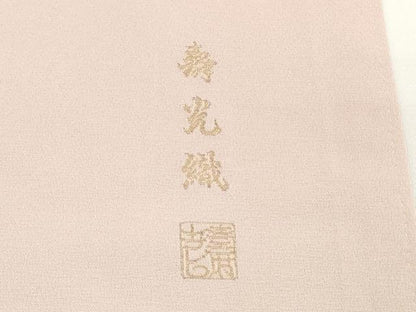 寿光織